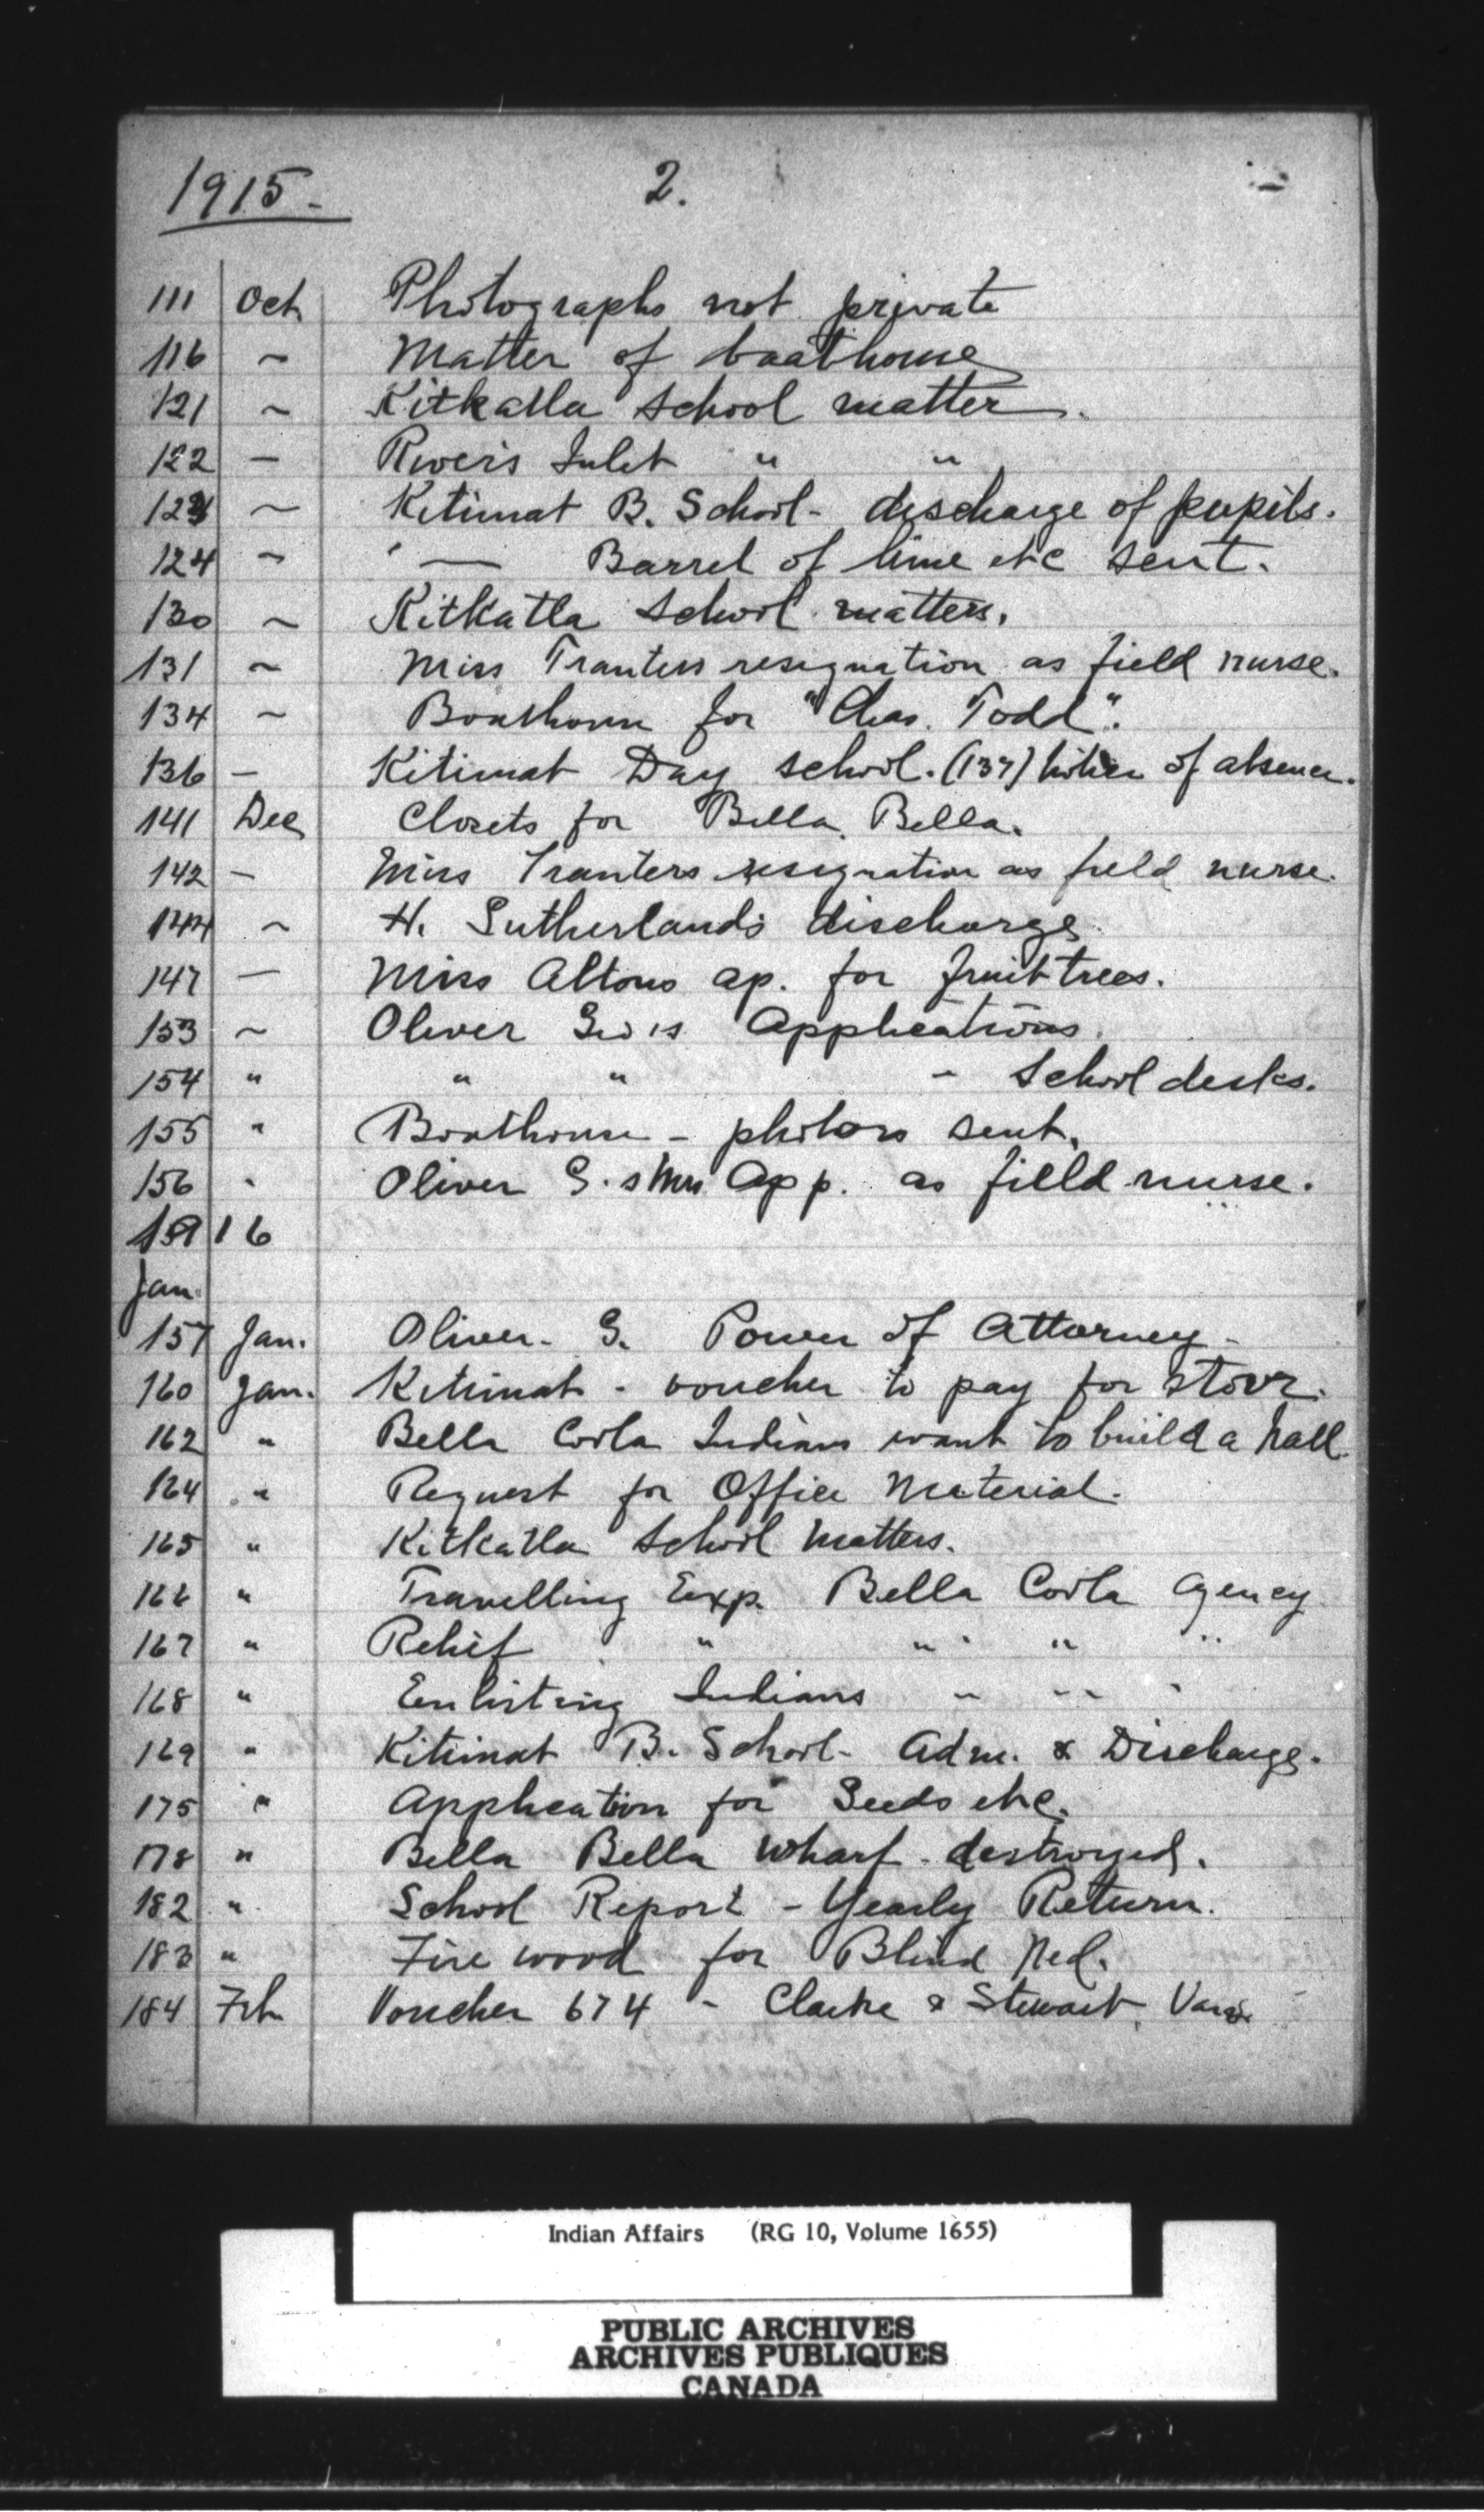 1915.- 2.
111 Oct. Photographs not private
116 ~ Matter of boathouse
121 ~ Kitkatla school matter.
122 — Rivers Inlet " "
123 ~ Kitimat B. School - discharge of pupils.
124 ~ ' — Barrel of lime etc sent.
130 ~ Kitkatla School matters.
131 ~ Miss Tranters resignation as field nurse.
134 ~ Boathouse for "Chas. Todd".
136 — Kitimat Day school. (137) of absence.
141 Dec Closets for Bella Bella.
142 — Miss Tranters resignation as field nurse.
144 ~ H. Sutherlands discharge.
147 — Miss Altons ap. for fruit trees.
153 ~ Oliver Applications.
154 " " " - School desks.
155 " Boathouse - photos sent.
156 " Oliver G. App. as field nurse.
1916
Jan.
157 Jan. Oliver. G. Power of Attorney -
160 Jan. Kitimat - voucher to pay for stove.
162 " Bella Coola Indians want to build a hall.
164 " Request for Office Material.
165 " Kitkatla School matters.
166 " Travelling Exp. Bella Coola Agency
167 " Relief " " " "
168 " Enlisting Indians " " "
169 " Kitimat B. School - Adm. & Discharge.
175 " Application for Seeds etc.
178 " Bella Bella Wharf - destroyed.
182 " School Report - Yearly Return.
183 " Fire wood for Blind Ned.
184 Feb. Voucher 674 - Clarke & Stewart,
Indian Affairs (RG 10, Volume 1655)
PUBLIC ARCHIVES
ARCHIVES PUBLIQUES
CANADA